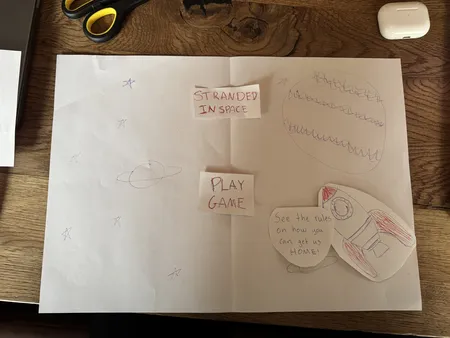 STRANDED
IN SPACE
PLAY
GAME
See the rules
on how you
can get us
HOME!